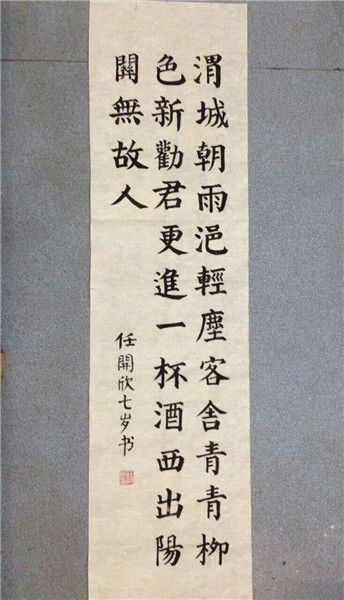 渭城朝雨浥輕塵客舍青青柳
色新勸君更進一杯酒西出陽
關無故人
任開欣七岁书